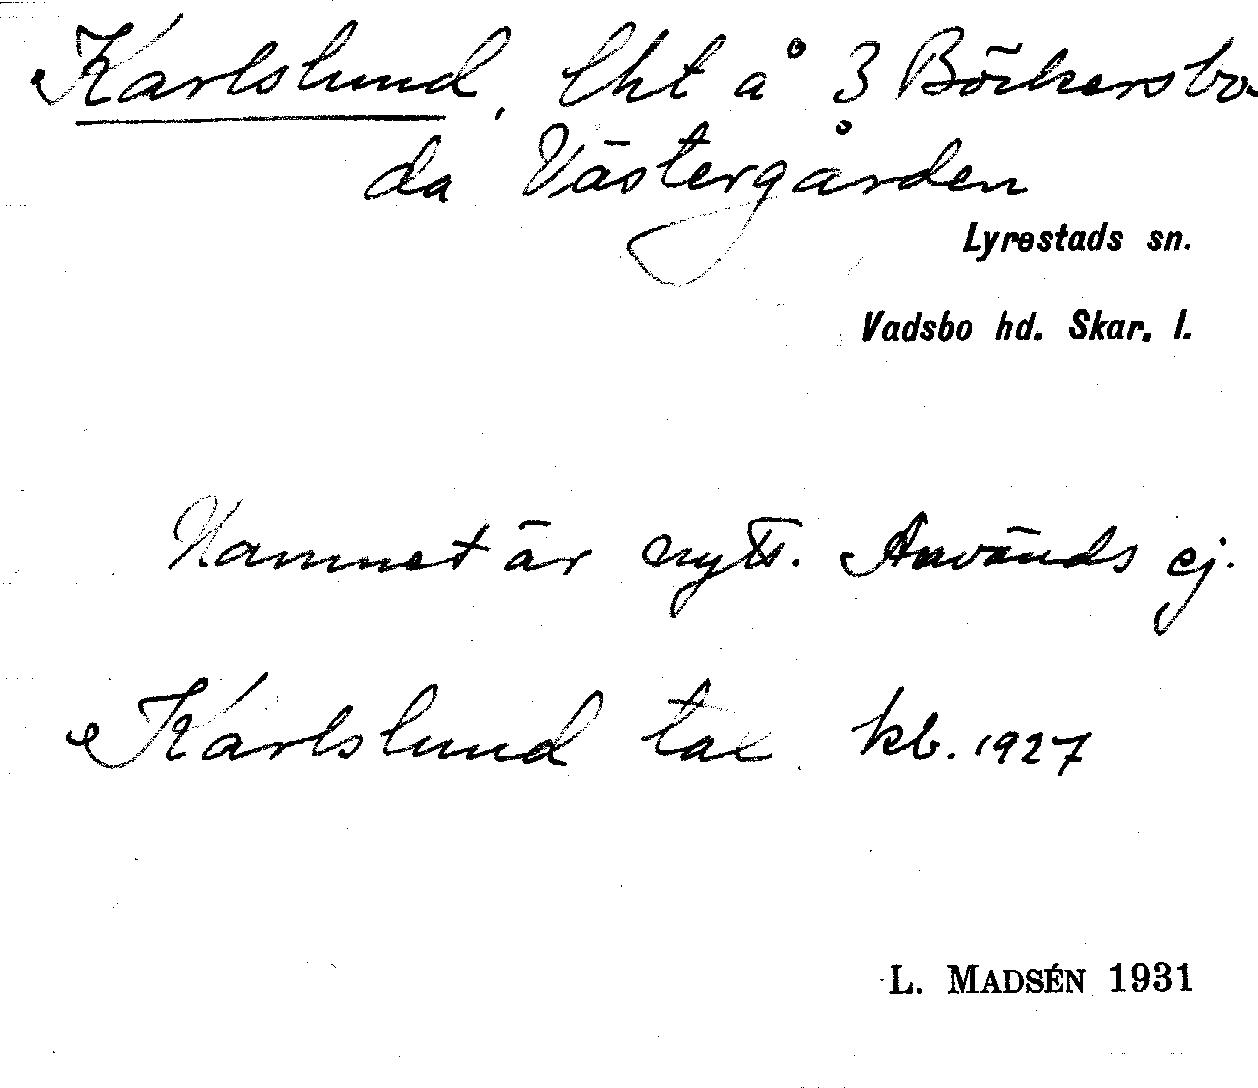 Karlslund, lht å 3 Böckersbo-
da Västergården
Lyrestads sn.
Vadsbo hd. Skar. l.
Namnet är nytt. Används ej.
Karlslund kb. 1927
L. MADSÉN 1931